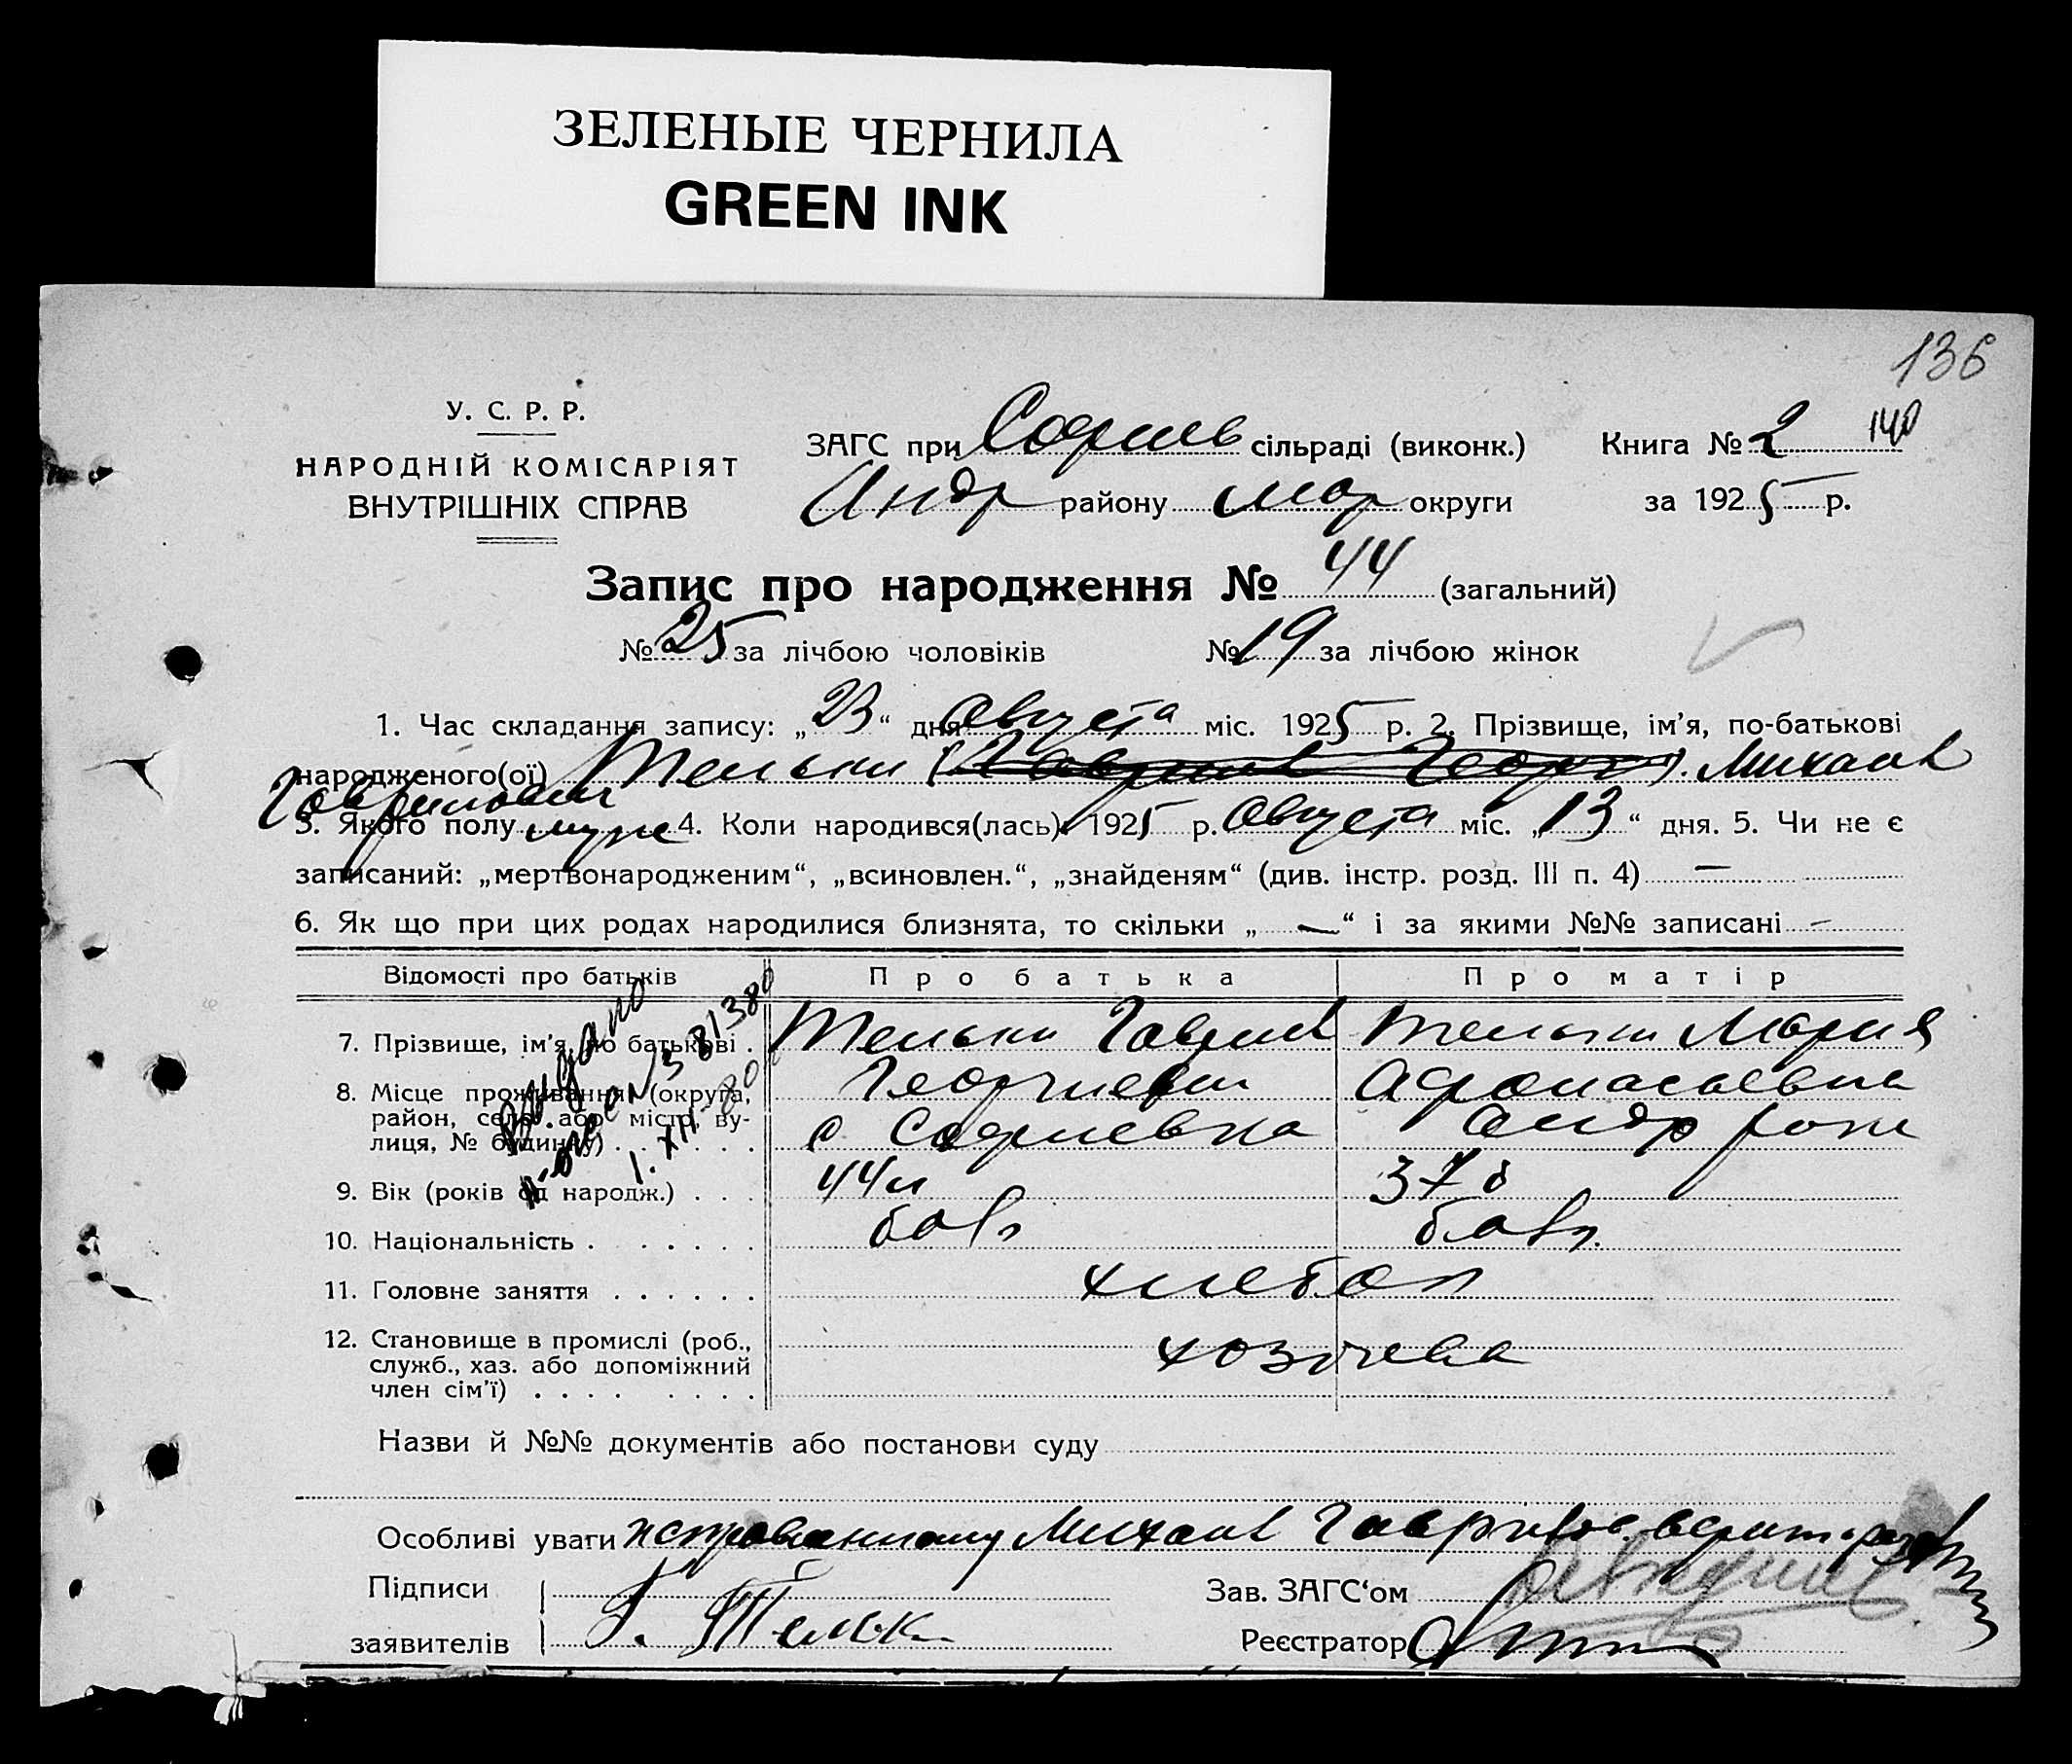 ЗЕЛЕНЫЕ ЧЕРНИЛА
GREEN INK
136
У. С. Р. Р.
НАРОДНІЙ КОМІСАРІЯТ
ВНУТРІШНІХ СПРАВ
ЗАГС при Софиев сільраді (виконк.) Книга № 2 140
Андр району Мар округи за 1925 р.
Запис про народження № 44 (загальний)
№ 25 за лічбою чоловіків № 19 за лічбою жінок
1. Час складання запису: „23“ дня Августа міс. 1925 р. 2. Прізвище, ім'я, по-батькові
народженого(ої) Тельки (Гавриил Георг). Михаил
Гаврилович
3. Якого полу муж 4. Коли народився(лась) 1925 р. Августа міс. „13“ дня. 5. Чи не є
записаний: „мертвонародженим“, „всиновлен.“, „знайденям“ (див. інстр. розд. III п. 4) —
6. Як що при цих родах народилися близнята, то скільки „—“ і за якими №№ записані —
Відомості про батьків Про батька Про матір
7. Прізвище, ім'я, по батькові . Тельки Гавриил Тельки Мария
8. Місце проживання (округа, Георгиевич Афонасьевна
район, село або місто, ву- с Софиевка Андр рона
лиця, № будинку) . . . . . . .
Выдано
повтор 381380
1.XII-80
9. Вік (років од народж.) . . . 44 л 37 л
10. Національність . . . . . . . болг болг.
11. Головне заняття . . . . . . хлебоп
12. Становище в промислі (роб.,
служб., хаз. або допоміжний хозяева
член сім'ї) . . . . . . . .
Назви й №№ документів або постанови суду
Особливі уваги Исправленному Михаил Гаврилов верить
Підписи
заявителів Г. Тельк
Зав. ЗАГС‘ом
Реєстратор